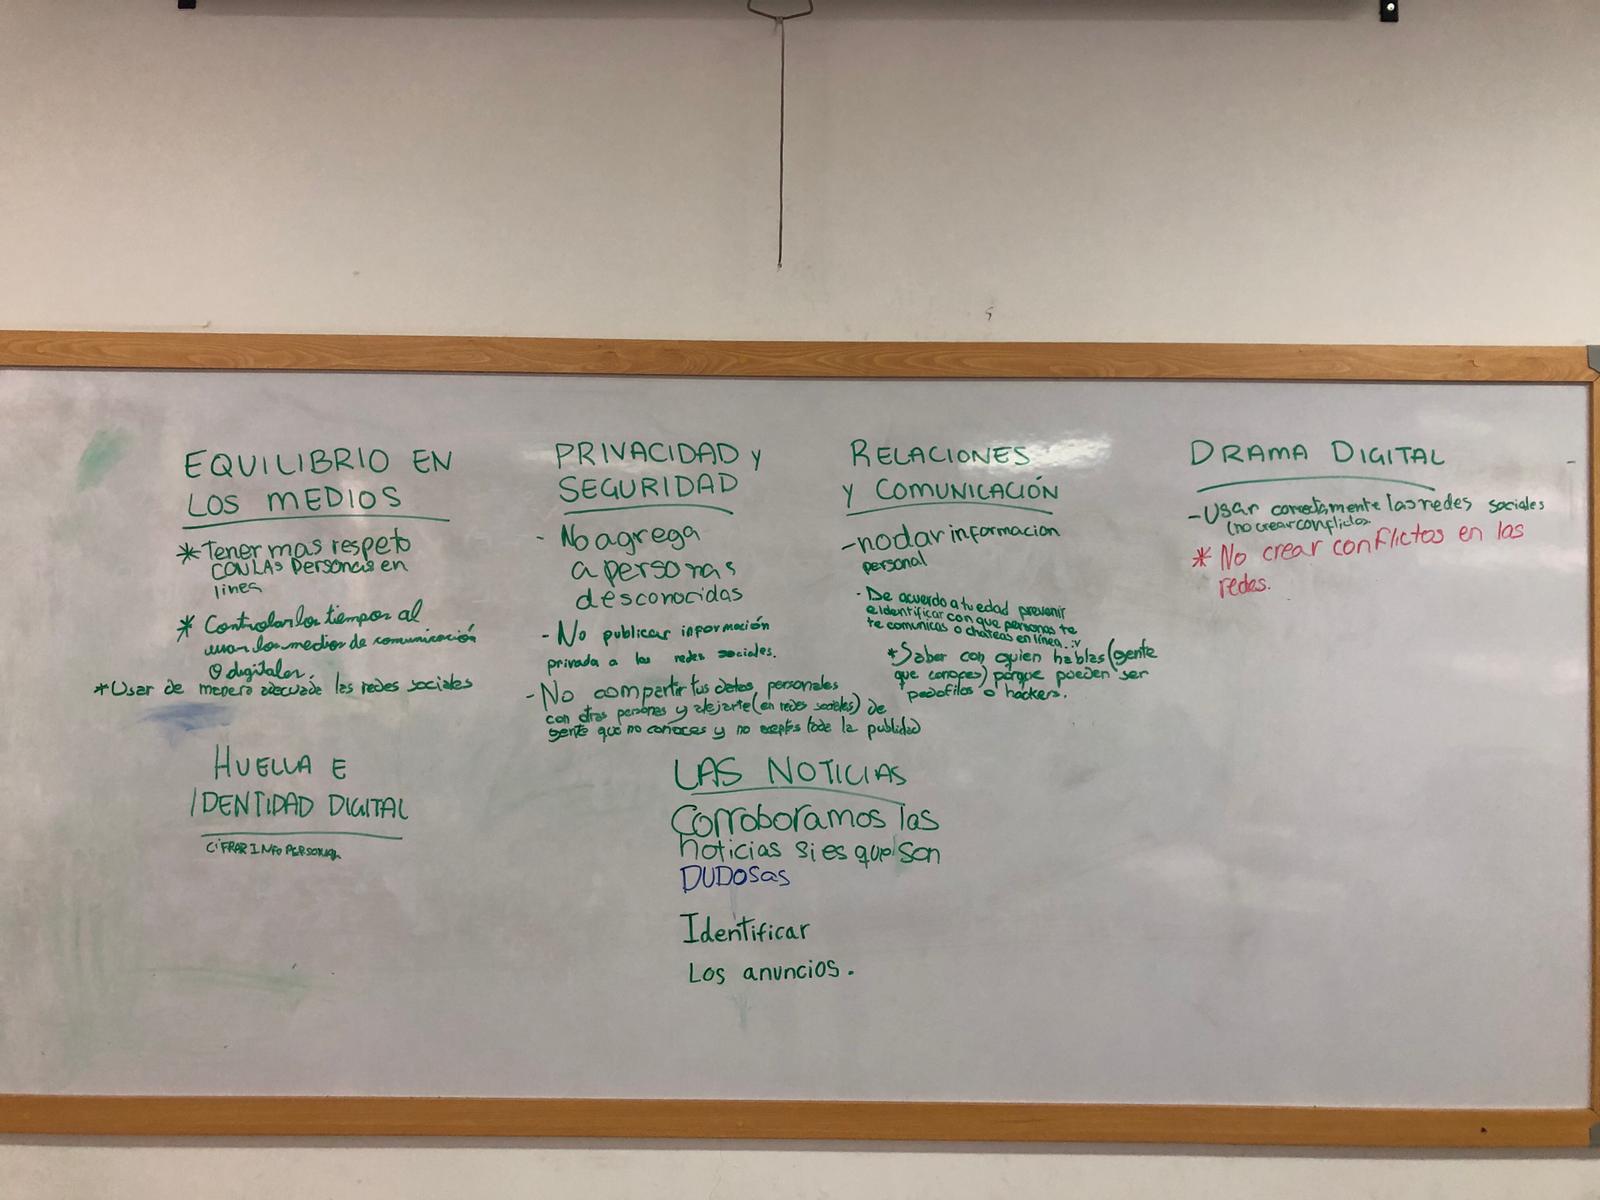 EQUILIBRIO EN
LOS MEDIOS
* Tener mas respeto
CON LAS Personas en
linea
* Controlar los tiempos al
usar los medios de comunicación
o digitales.
* Usar de manera adecuada las redes sociales
PRIVACIDAD Y
SEGURIDAD
- No agrega
a personas
desconocidas
- No publicar información
privada a las redes sociales.
- No compartir tus datos personales
con otras personas y alejarte (en redes sociales) de
gente que no conoces y no aceptes toda la publidad
RELACIONES
Y COMUNICACIÓN
- no dar informacion
personal
- De acuerdo a tu edad prevenir
e identificar con que personas te
te comunicas o chateas en línea. :v
* Saber con quien hablas (gente
que conoces) porque pueden ser
pedofilos o hackers.
DRAMA DIGITAL
- Usar correctamente las redes sociales
(no crear conflictos
* No crear conflictos en las
redes.
HUELLA E
IDENTIDAD DIGITAL
CIFRAR INFO PERSONAL
LAS NOTICIAS
Corroboramos las
noticias si es que son
DUDOSas
Identificar
Los anuncios.